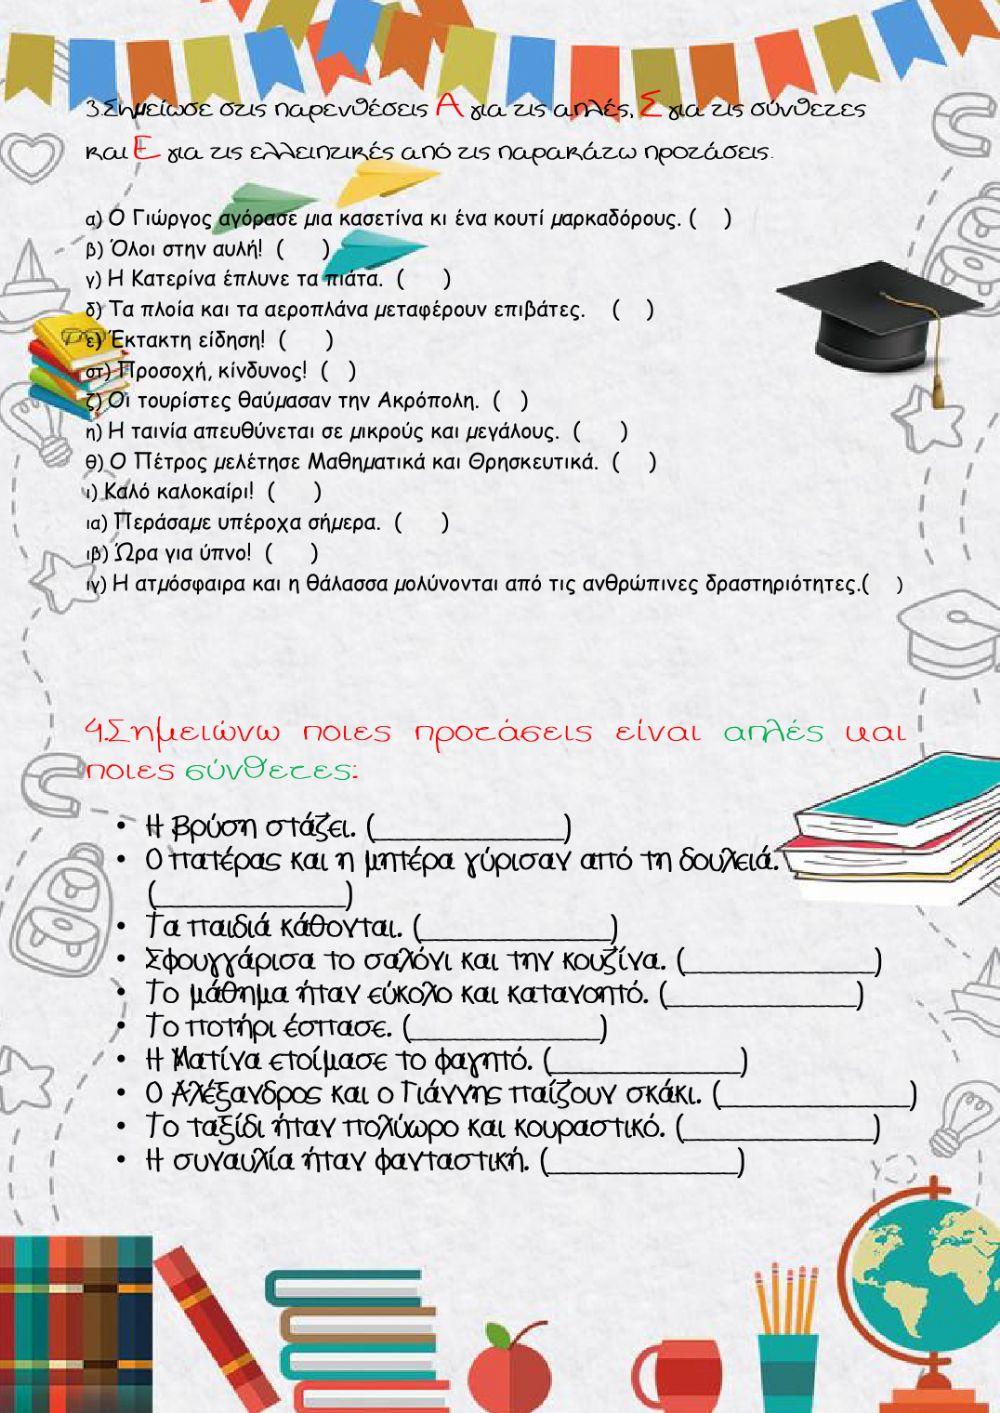 3.Σημείωσε στις παρενθέσεις Α για τις απλές, Σ για τις σύνθετες
και Ε για τις ελλειπτικές από τις παρακάτω προτάσεις.
α) Ο Γιώργος αγόρασε μια κασετίνα κι ένα κουτί μαρκαδόρους. ( )
β) Όλοι στην αυλή! ( )
γ) Η Κατερίνα έπλυνε τα πιάτα. ( )
δ) Τα πλοία και τα αεροπλάνα μεταφέρουν επιβάτες. ( )
ε) Έκτακτη είδηση! ( )
στ) Προσοχή, κίνδυνος! ( )
ζ) Οι τουρίστες θαύμασαν την Ακρόπολη. ( )
η) Η ταινία απευθύνεται σε μικρούς και μεγάλους. ( )
θ) Ο Πέτρος μελέτησε Μαθηματικά και Θρησκευτικά. ( )
ι) Καλό καλοκαίρι! ( )
ια) Περάσαμε υπέροχα σήμερα. ( )
ιβ) Ώρα για ύπνο! ( )
ιγ) Η ατμόσφαιρα και η θάλασσα μολύνονται από τις ανθρώπινες δραστηριότητες.( )
4.Σημειώνω ποιες προτάσεις είναι απλές και
ποιες σύνθετες:
• Η βρύση στάζει. (______________)
• Ο πατέρας και η μητέρα γύρισαν από τη δουλειά.
(______________)
• Τα παιδιά κάθονται. (______________)
• Σφουγγάρισα το σαλόνι και την κουζίνα. (______________)
• Το μάθημα ήταν εύκολο και κατανοητό. (______________)
• Το ποτήρι έσπασε. (______________)
• Η Ματίνα ετοίμασε το φαγητό. (______________)
• Ο Αλέξανδρος και ο Γιάννης παίζουν σκάκι. (______________)
• Το ταξίδι ήταν πολύωρο και κουραστικό. (______________)
• Η συναυλία ήταν φανταστική. (______________)